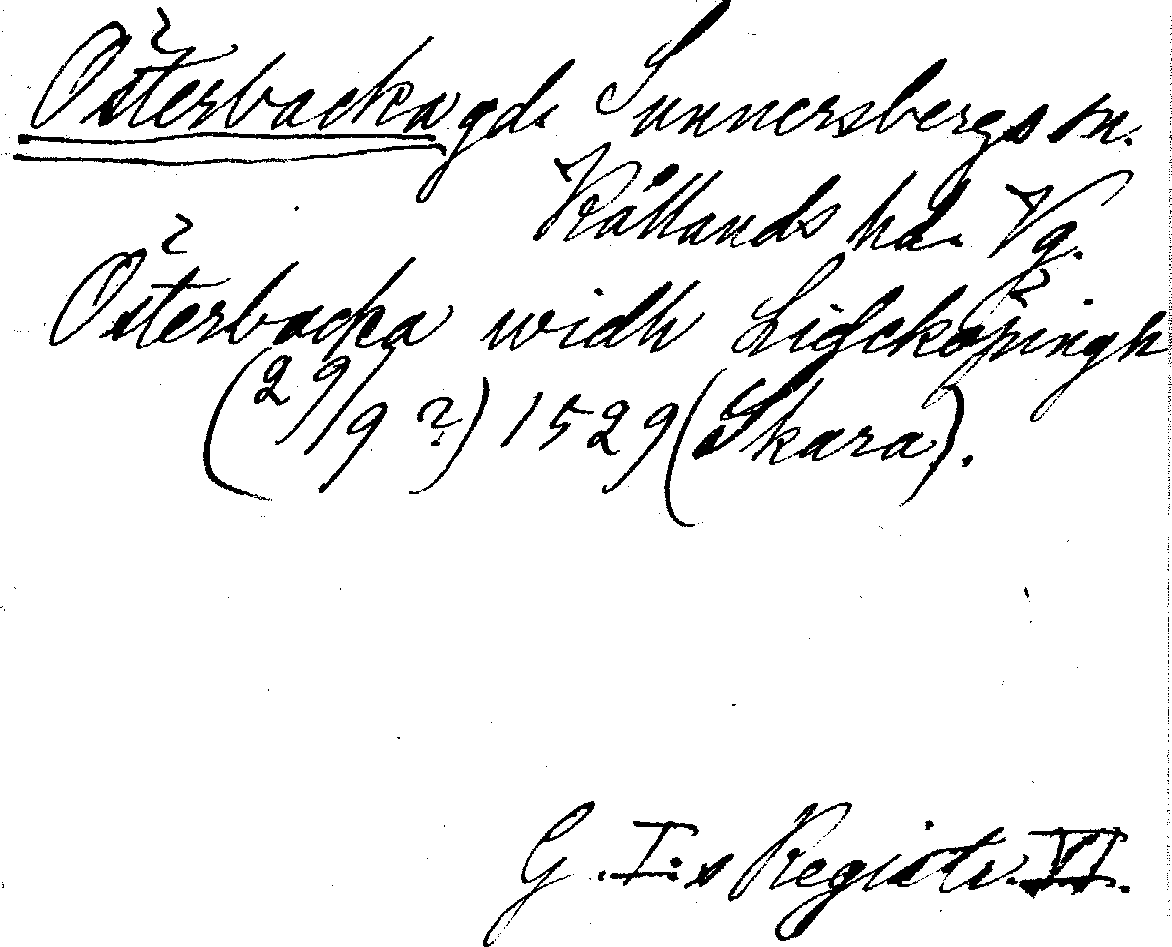 Österbacka gd. Sunnersbergs sn.
Kållands hd. Vg.
Österbacka widh Lidcköpingh
(29/9 ?) 1529 (Skara).
G. I:s Registr. VI.